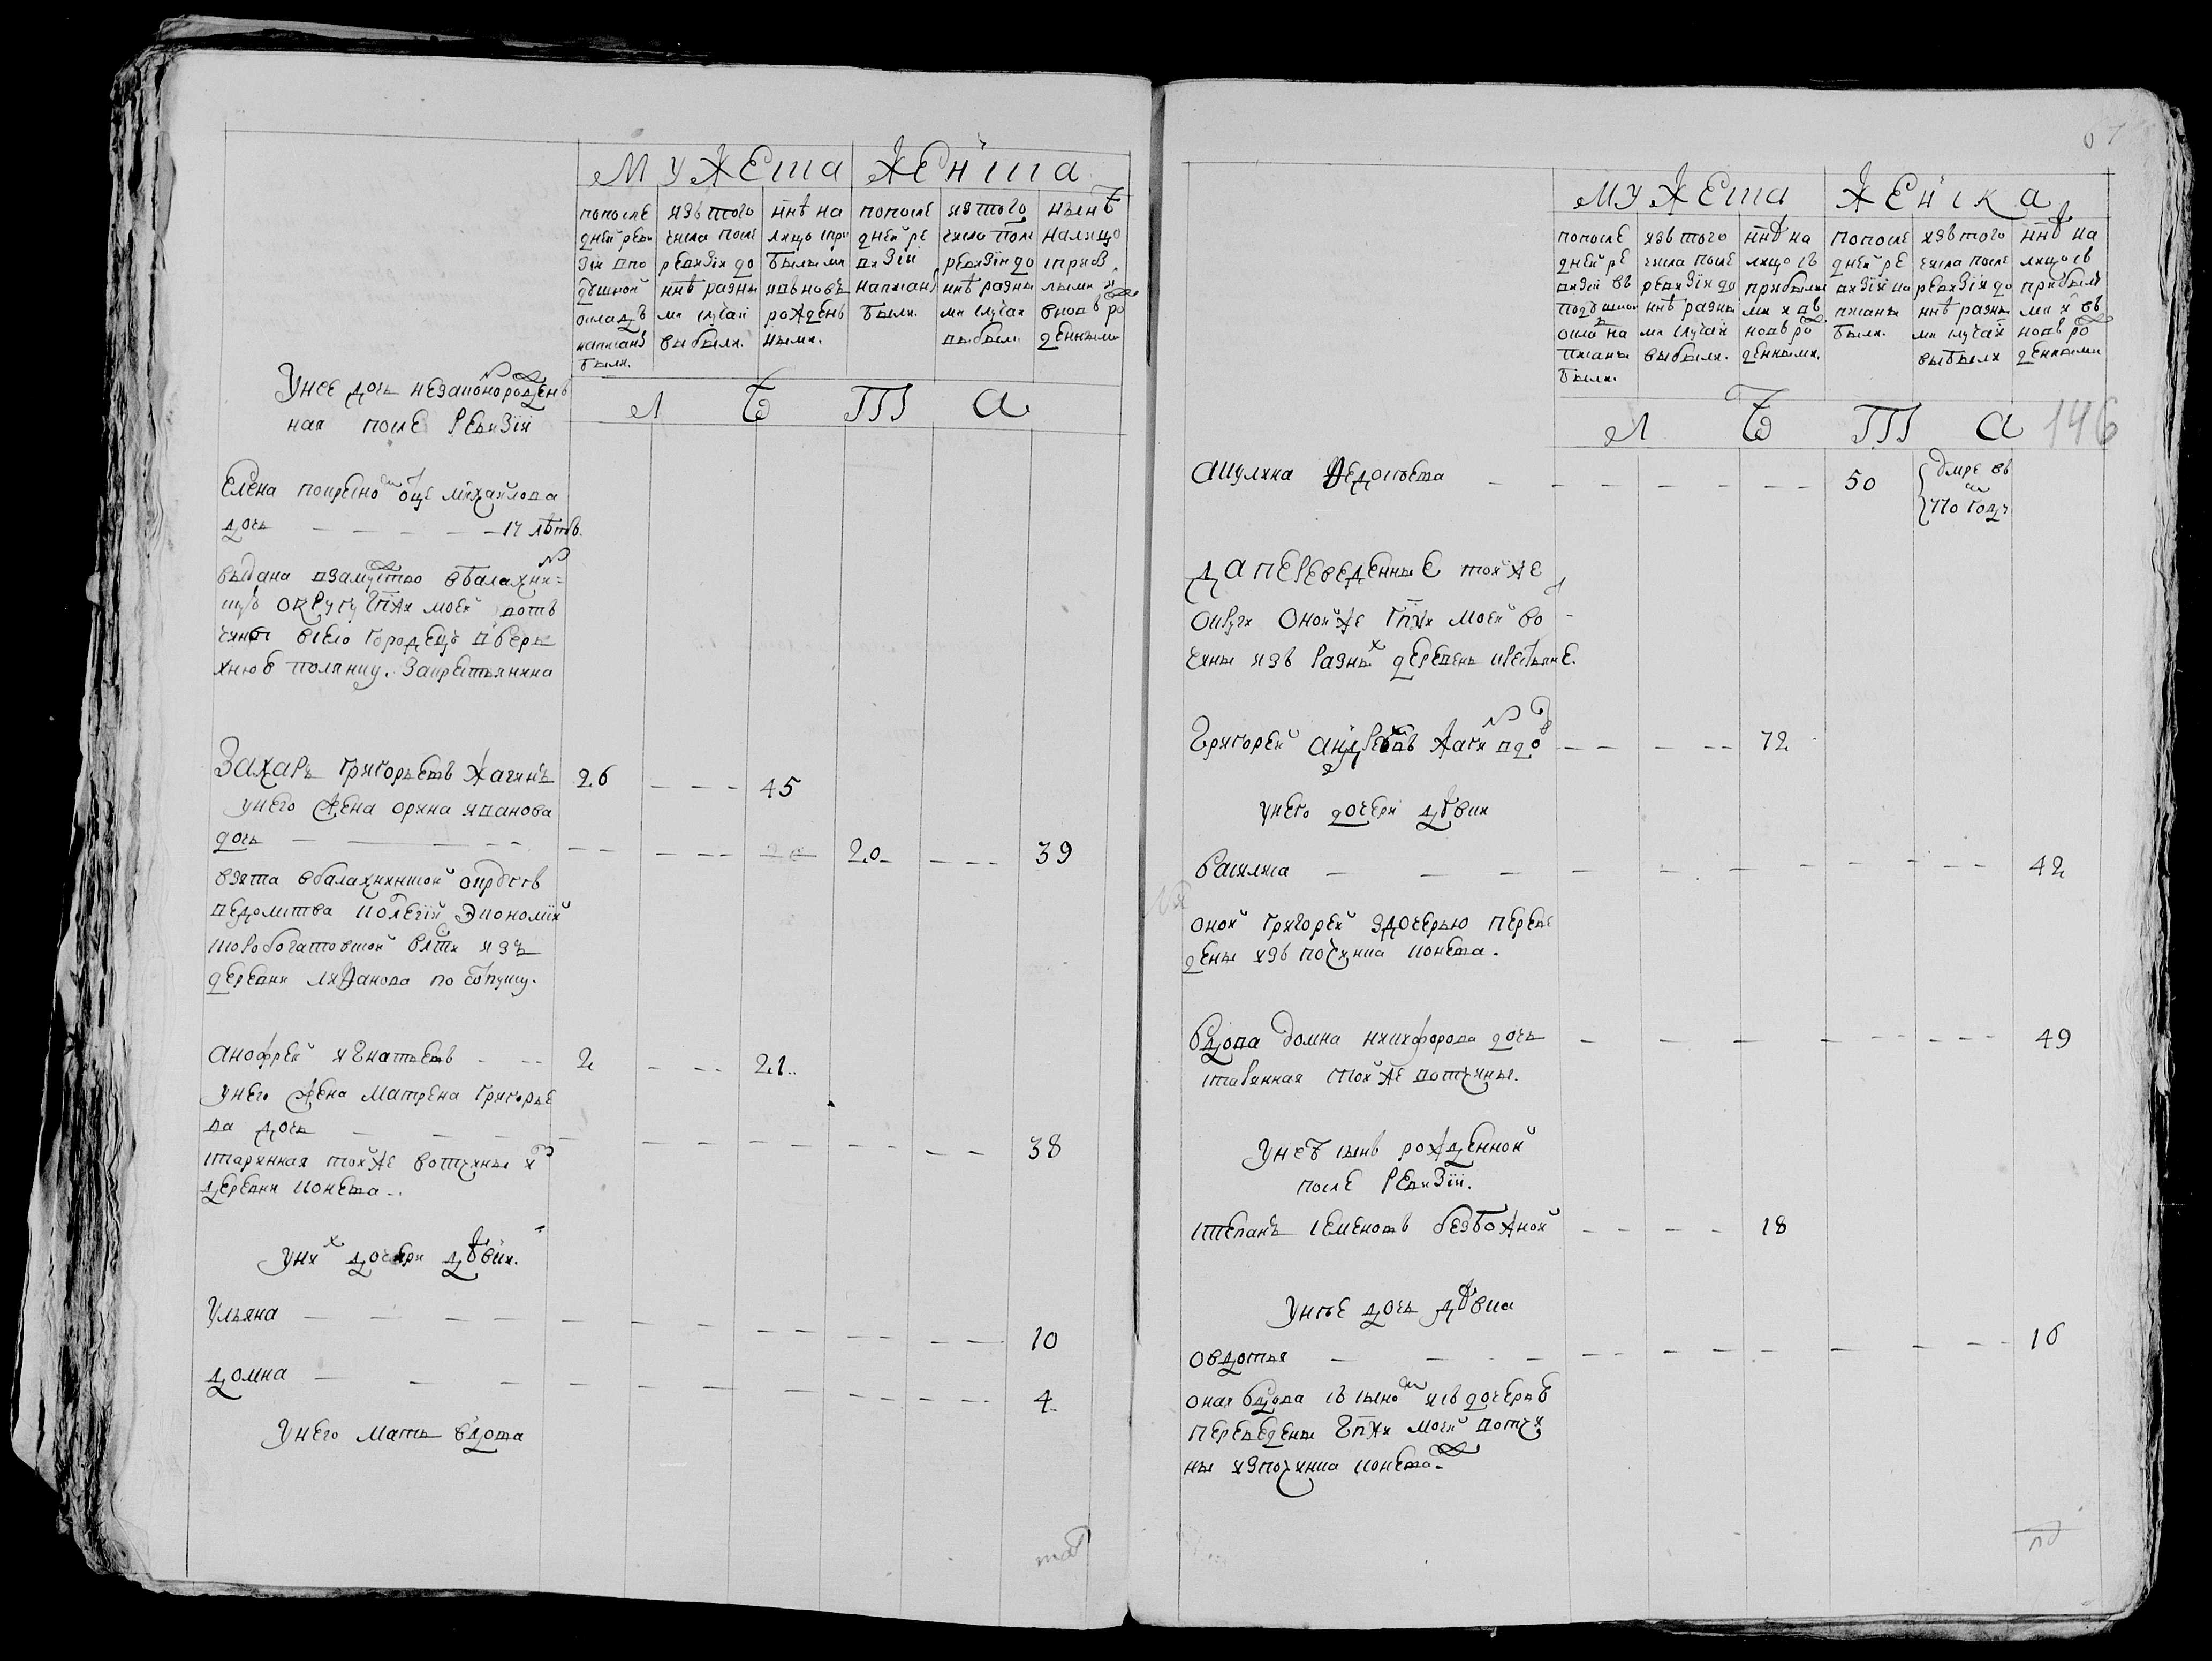 Мужеска женска
попосле
дней реви
зіи впо
душной
окладъ
написаны
были.
изъ того
числа после
ревизіи до
ннѣ разны
ми случаи
выбыли.
ннѣ на
лицо спри
былыми
ивьновь
рожденъ
ными.
попосле
дней ре
визіи
написаны
были.
изтого
числа посл
ревизіи до
ннѣ разны
ми случаи
выбыли
нынѣ
налицо
сприб
лыми и
вновь ро
жденными
Лѣта
Унее дочь незаконорожденъ
ная после ревизіи
Елена покресно отце михайлова
дочь 17 лѣтъ.
выдана взамуство вбалахнин=
скую округу гпжи моей вотъ
чины всело городецъ вверь
хнюю полянку. закрестьянина
Захаръ григорьевъ жагинъ 26 45
унего жена орина иванова
дочь 20 39
взята вбалахнинской округѣ
ведомства колегіи экономіи
скоробогатовской власти изъ
деревни лифанова по отпуску.
анофрей игнатьевъ 2 21
унего жена матрена григорье
ва дочь 38
старинная тойже вотчины из
деревни конева.
уних дочери дѣвки.
ульяна 10
домна 4
унего мать вдова
67
Мужеска женска
попосле
дней ре
визіи въ
подушном
окла на
писаны
были.
изъ того
числа после
ревизіи до
ннѣ разны
ми случаи
выбыли.
ннѣ на
лицо съ
прибылы
ми и въ
новь ро
жденными.
попосле
дней ре
визіи на
писаны
были.
изъ того
числа после
ревизіи до
ннѣ разны
ми случаи
выбыли
ннѣ на
лицо съ
прибылы
ми и въ
новь ро
жденными
Лѣта 146
акулина Федосѣева 50 умре въ
770 году
да переведенные тойже
округи онойже гпжи моей во
чины изъ разных деревень крестьяне.
Григорей андреевъ жагин вдов 72
унего дочери дѣвки
василиса 42
оной григорей здочерью переве
дены изъ починка конева.
Вдова домна никифорова дочь 49
старинная тойже вотчины.
унеѣ сынъ рожденной
после ревизіи.
степанъ семеновъ безбожной 18
унѣе дочь дѣвка
овдотья 16
оная вдова съ сыном исъ дочерью
переведены гпжи моей вотчи
ны изпочинка конева.